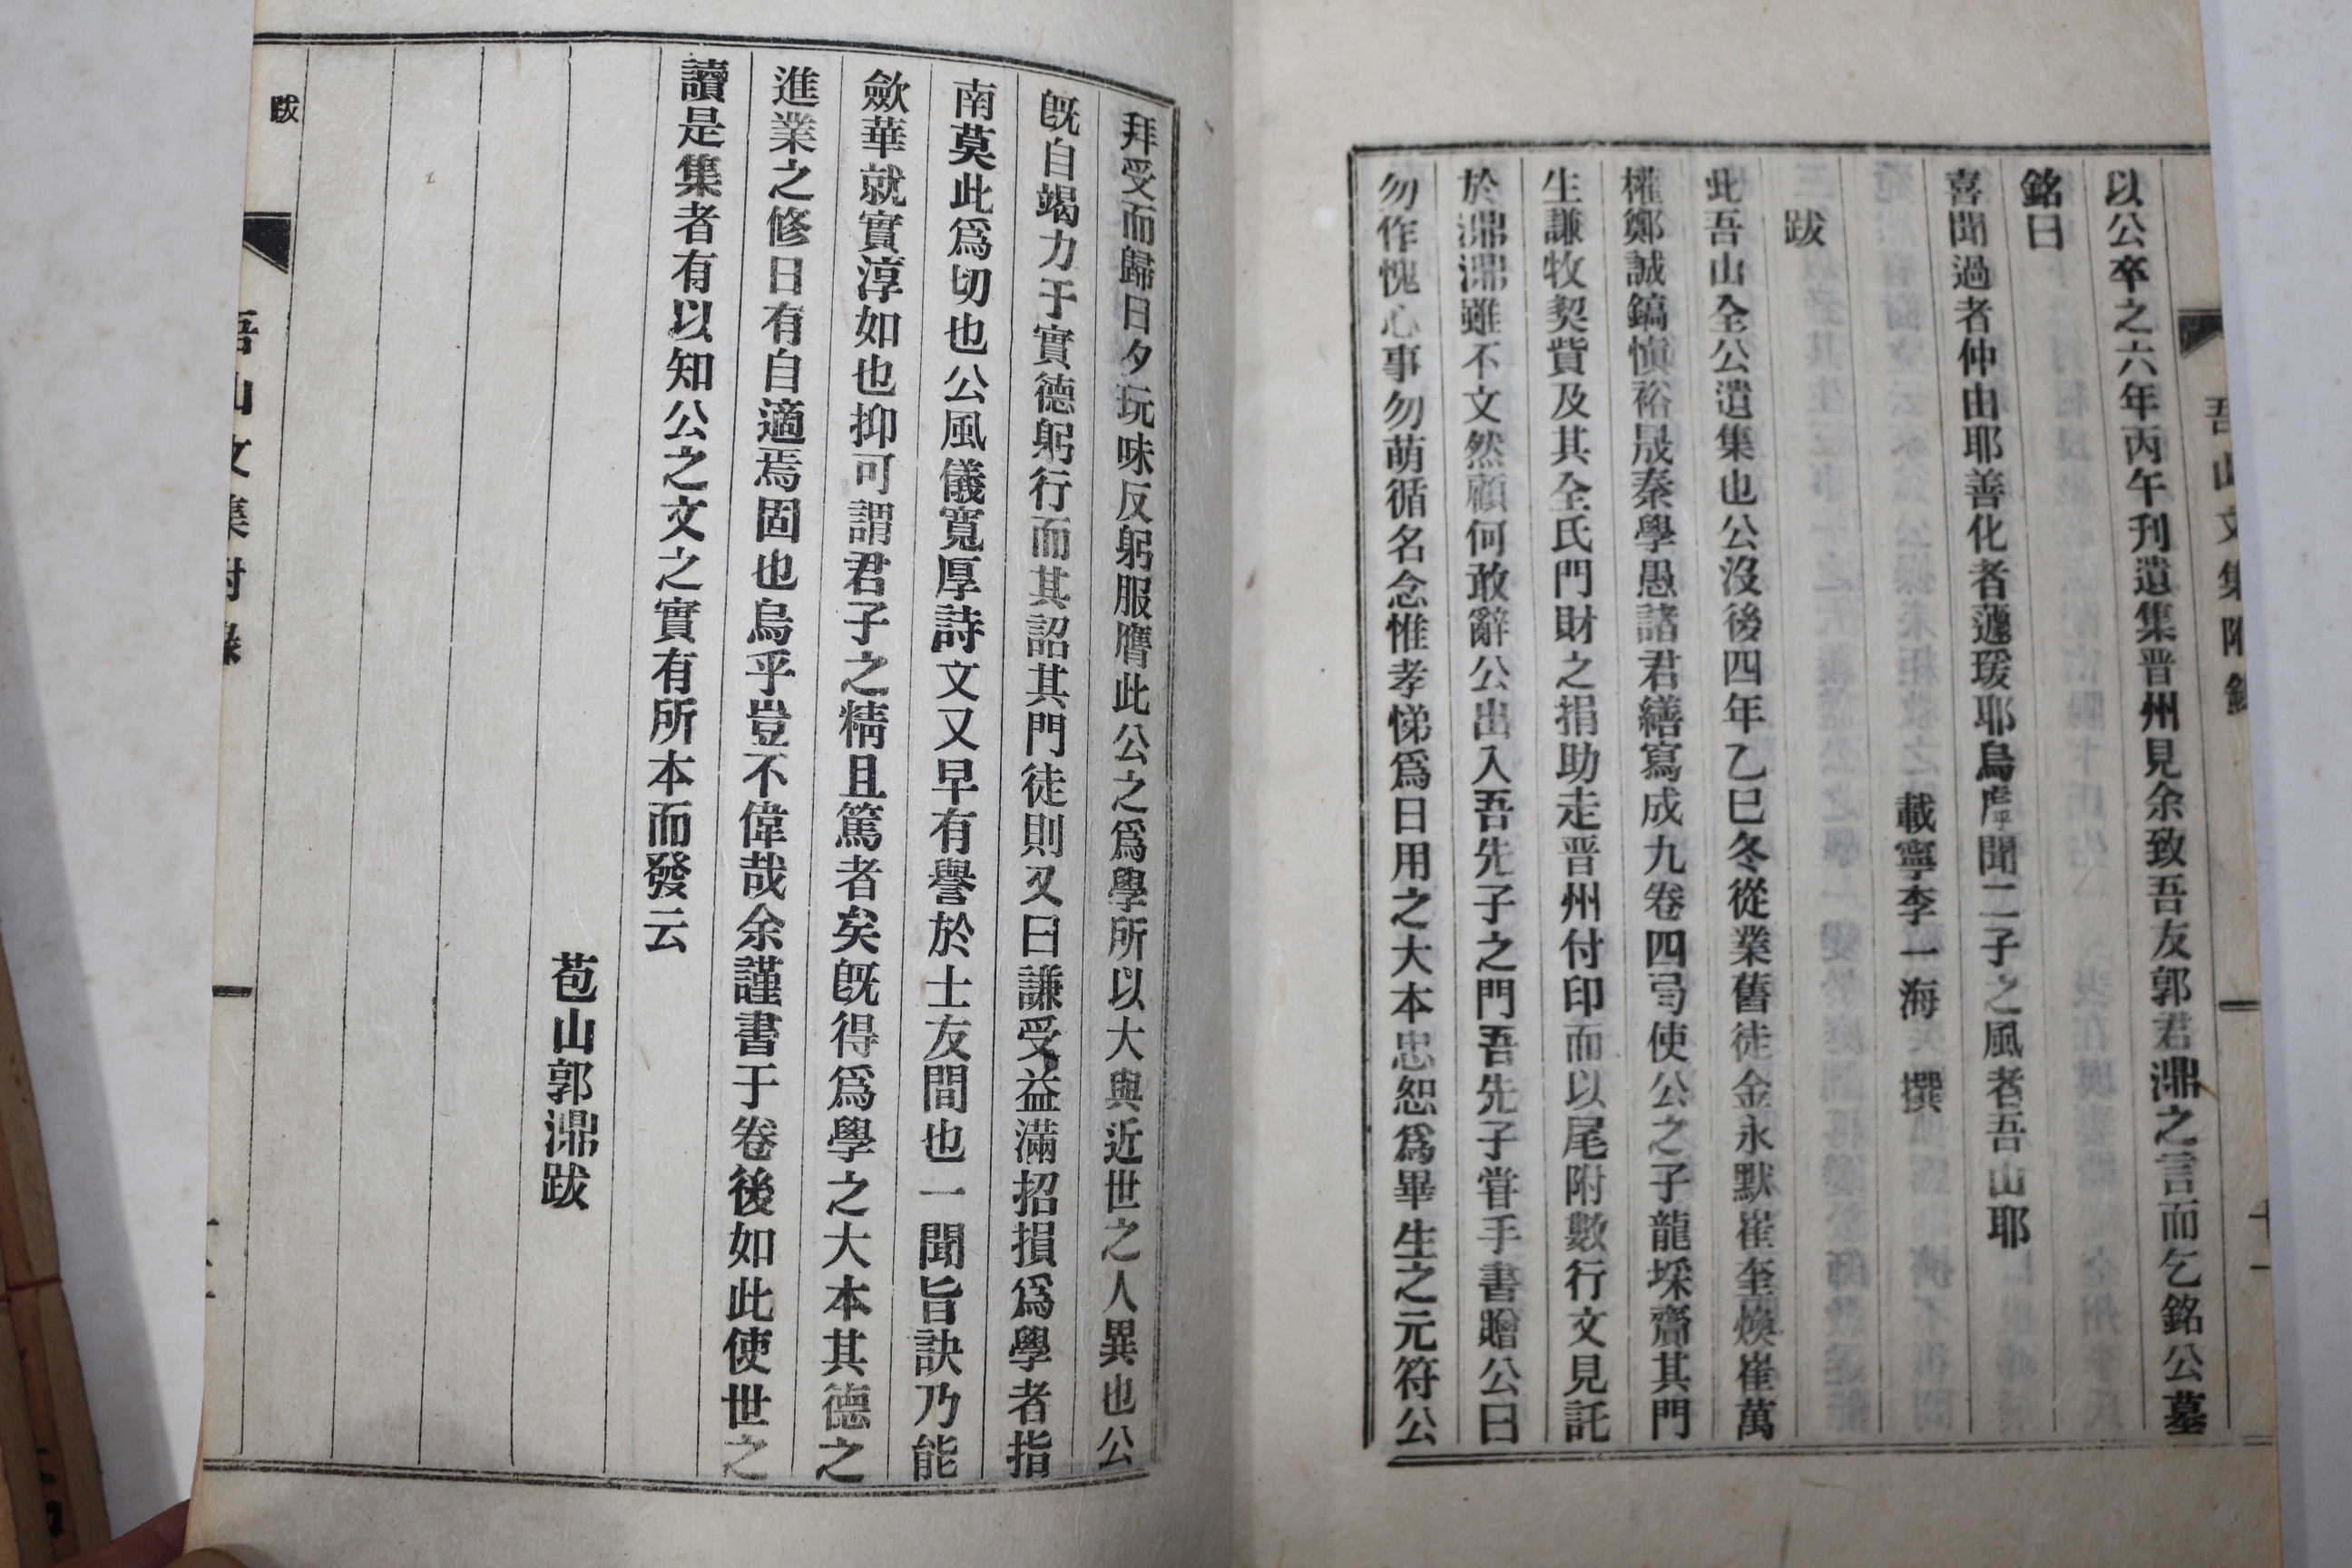 以公卒之六年丙午刊遺集晋州見余致吾友郭君鼎之言而乞銘公墓
銘曰
喜聞過者仲由耶善化者蘧瑗耶烏虖聞二子之風者吾山耶
載寧李一海 撰
跋
此吾山全公遺集也公沒後四年乙巳冬從業舊徒金永默崔奎煥崔萬
權鄭誠鎬愼裕晟秦學愚諸君繕寫成九卷四弓使公之子龍埰齎其門
生謙牧契貲及其全氏門財之捐助走晋州付印而以尾附數行文見託
於鼎鼎雖不文然顧何敢辭公出入吾先子之門吾先子甞手書贈公曰
勿作愧心事勿萌循名念惟孝悌爲日用之大本忠恕爲畢生之元符公
拜受而歸日夕玩味反躬服膺此公之爲學所以大與近世之人異也公
旣自竭力于實德躬行而其詔其門徒則又曰謙受益滿招損爲學者指
南莫此爲切也公風儀寬厚詩文又早有譽於士友間也一聞旨訣乃能
斂華就實淳如也抑可謂君子之精且篤者矣旣得爲學之大本其德之
進業之修日有自適焉固也烏乎豈不偉哉余謹書于卷後如此使世之
讀是集者有以知公之文之實有所本而發云
苞山郭鼎跋
跋
吾山文集附錄